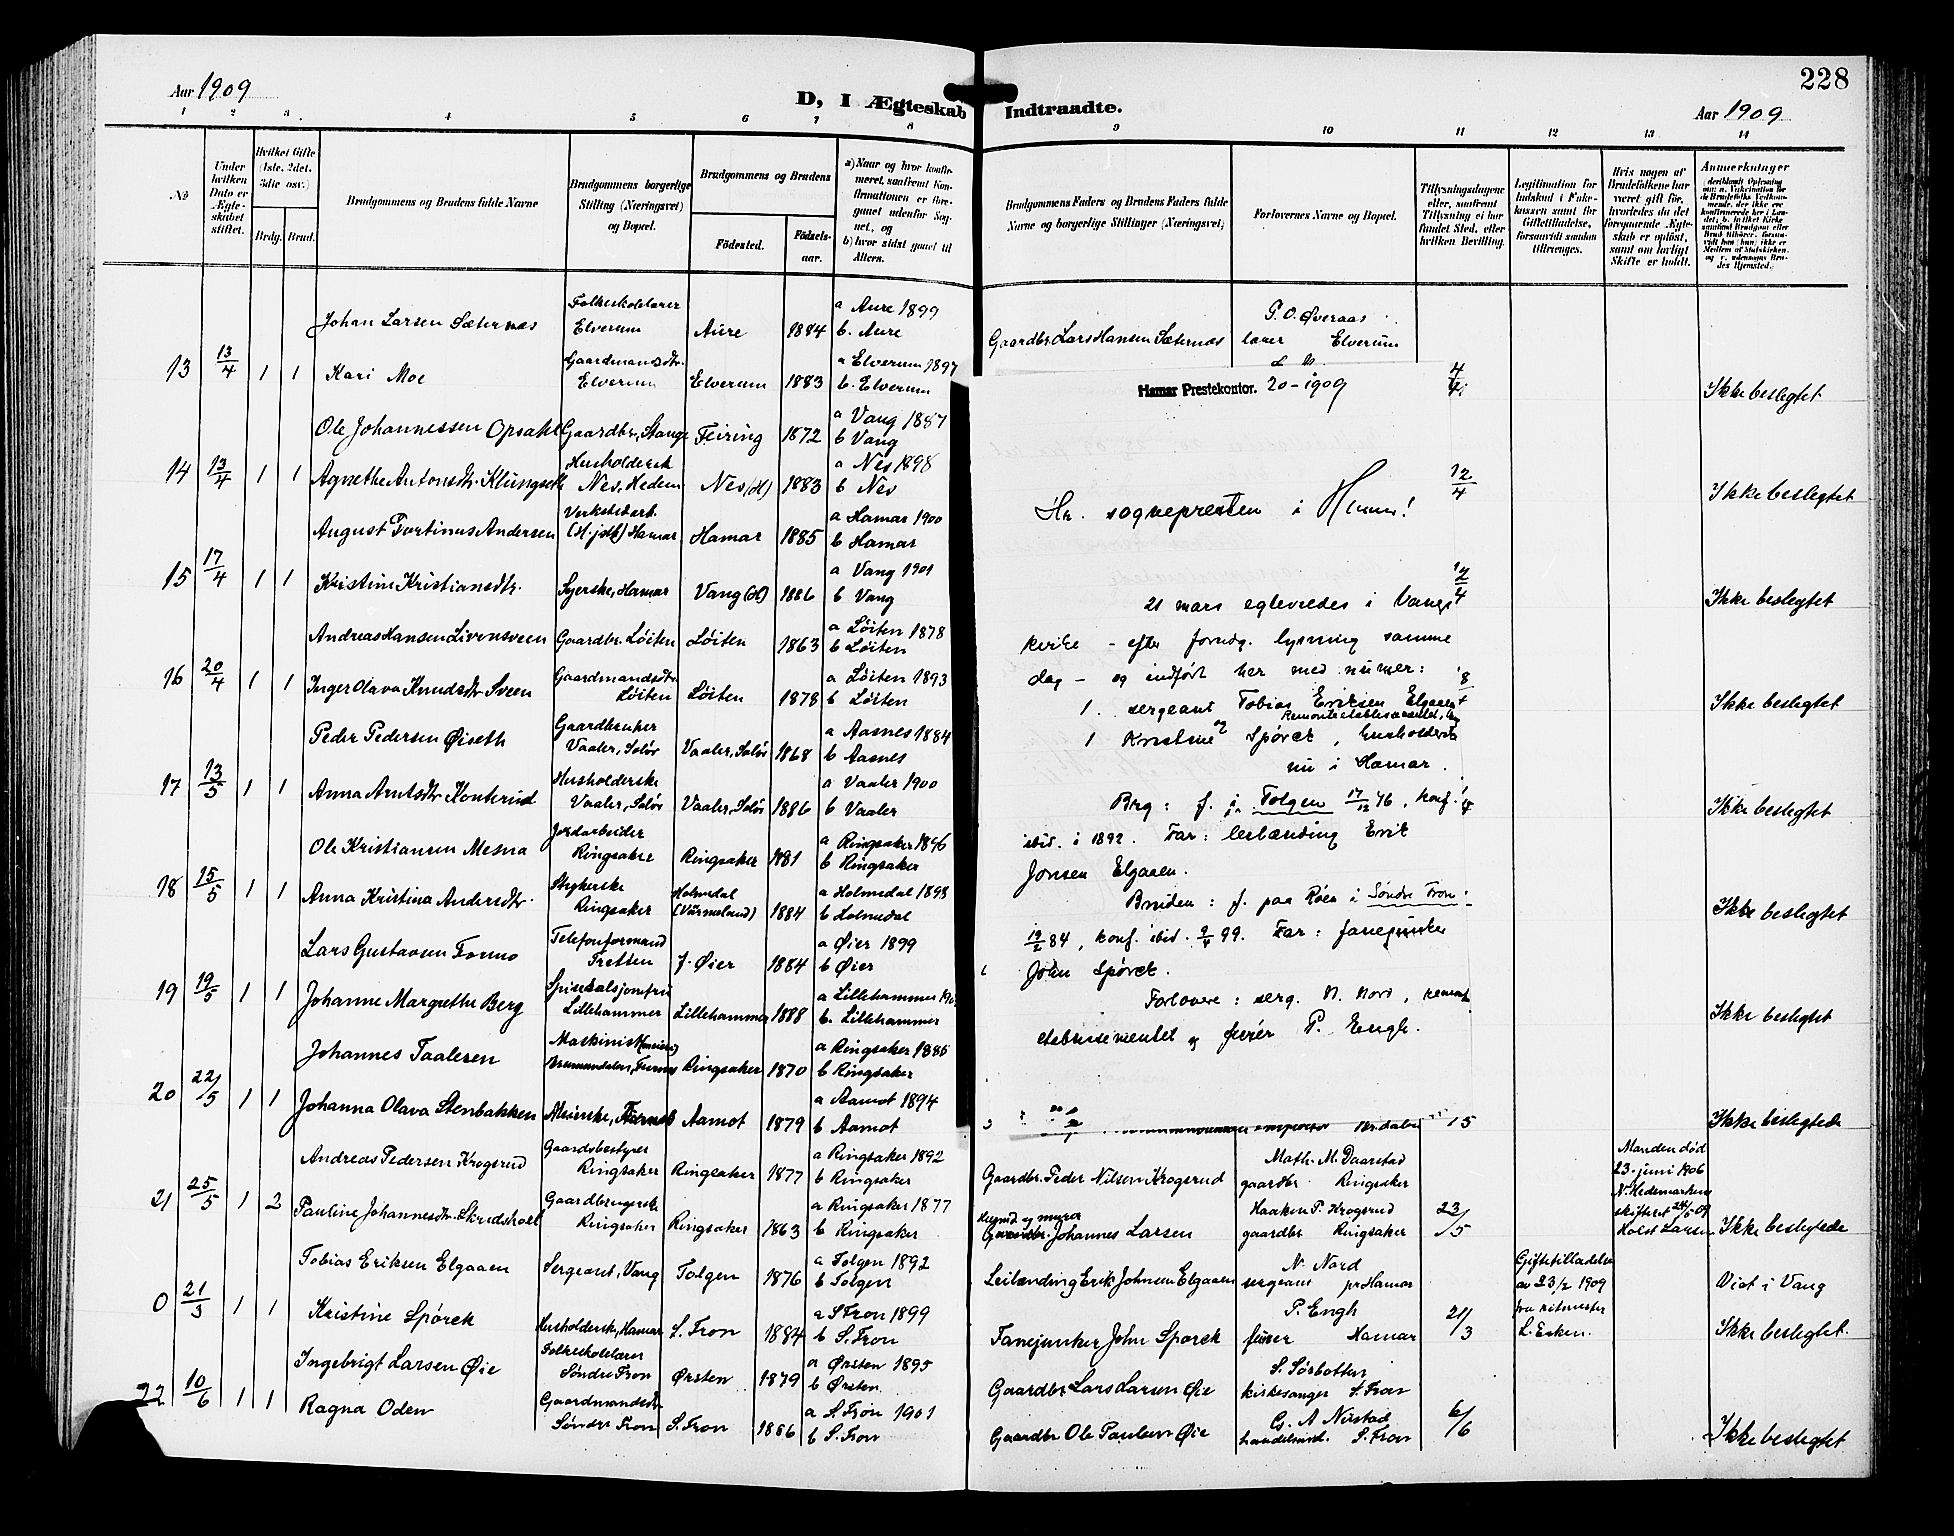 228
Aar 1909
D, I Ægteskab Indtraadte.
Aar 1909
1 2 3. 4 5 6 7 8 9 10 11 12 13 14
No
Under hvilken Dato er Ægteskabet stiftet.
Hvilket Gifte (1ste, 2det, 3die osv.)
Brdg. Brud.
Brudgommens og Brudens fulde Navne
Brudgommens borgerlige Stilling (Næringsvei) og Bopæl.
Brudgommens og Brudens
Fødested.
Fødselsaar.
a) Naar og hvor konfirmeret, saafremt Konfirmationen er foregaaet udenfor Sognet, og
b) hvor sidst gaaet til Alters.
Brudgommens Faders og Brudens Faders fulde Navne og borgerlige Stillinger (Næringsvei)
Forlovernes Navne og Bopæl.
Tillysningsdagene eller, saafremt Tillysning ei har fundet Sted, efter hvilken Bevilling.
Legitimation for Indskud i Enkekassen samt for Giftetilladelse, forsaavidt saadan tiltrænges.
Hvis nogen af Brudefolkene har været gift før, hvorledes da det foregaaende Ægteskab er opløst, samt om lovligt Skifte er holdt.
Anmerkninger
Johan Larsen Sæternes Folkeskolelærer Elverum Aure 1884 a Aure 1899 b. Aure Gaardbr. Lars Hansen Sæternes P. O. Øveraas lærer Elverum
13 13/4 1 1 Kari Moe Gaardmandsdtr. Elverum Elverum 1883 a Elverum 1897 b. Elverum 4/4 Ikke beslegtet
Ole Johannessen Opsahl Gaardbr, Stange Feiring 1872 a Vang 1887 b Vang
14 13/4 1 1 Agnethe Antonsdtr. Klungseth Husholdersk Nes, Hedem Nes (H) 1883 a Nes 1898 b Nes 12/4 Ikke beslegtet
August Fortinus Andersen Verkstedarb. Hamar Hamar 1885 a Hamar 1900 b Hamar
15 17/4 1 1 Kristine Kristiansdtr. Syerske, Hamar Vang (H) 1886 a Vang 1901 b Vang 12/4 Ikke beslegtet
Andreas Hansen Livensveen Gaardbr. Løiten Løiten 1863 a Løiten 1878 b Løiten
16 20/4 1 1 Inger Olava Knudsdtr Sveen Gaardmandsdtr. Løiten Løiten 1878 a Løiten 1893 b Løiten Ikke beslegtet
Peder Pedersen Øiseth Gaardbruker Vaaler, Solør Vaaler, Solør 1868 a Aasnes 1884 b Aasnes
17 13/5 1 1 Anna Arntsdtr Konterud Husholderske Vaaler, Solør Vaaler, Solør 1886 a Vaaler 1900 b Vaaler Ikke beslegtet
Ole Kristiansen Mesna Jordarbeider Ringsaker Ringsaker 1881 a Ringsaker 1896 b Ringsaker
18 15/5 1 1 Anna Kristina Andersdtr. Strykerske Ringsaker Holmedal (Värmeland) 1884 a Holmedal 1898 b Holmedal Ikke beslegtet
Lars Gustavsen Formo Telefonformand Tretten Ø. Øier 1884 a Øier 1899 b Øier
19 19/5 1 1 Johanne Margrethe Berg Lillehammer Lillehammer 1888 a Lillehammer b. Lillehammer Ikke beslegtet
Johannes Taalesen Maskinist Brumunddalen, Furnes Ringsaker 1870 a Ringsaker 1885 b Ringsaker
20 22/5 1 1 Johanna Olava Stenbakken Meierske, Furnes Aamot 1879 a Aamot 1894 b Aamot 15 Ikke beslegtede
Andreas Pedersen Krogsrud Gaardsbestyrer Ringsaker Ringsaker 1877 a Ringsaker 1892 b Ringsaker Gaardbr. Peder Nilsen Krogsrud Math. M. Daarstad gaardbr Ringsaker
21 25/5 1 2 Pauline Johannesdtr. Skredsholl Gaardbrugersk Ringsaker Ringsaker 1863 a Ringsaker 1877 b Ringsaker Husmd og murer Johannes Larsen Haaken P. Krogsrud gaardbr Ringsaker 23/5 Manden død 23. juni 1906 N. Hedemarkens skifteret Holst Larsen Ikke beslegtede
Tobias Eriksen Elgaaen Sergeant, Vang Tolgen 1876 a Tolgen 1892 b Tolgen Leilænding Erik Johnsen Elgaaen N. Nord sergeant pr Hamar Giftetilladelse av 23/2 1909 Viet i Vang
0 21/3 1 1 Kristine Spørck Husholderske, Hamar S. Fron 1884 a S. Fron 1899 b S. Fron Fanejunker John Spørck P. Engh furer Hamar 21/3 fra ritmester L. Esken. Ikke beslegtet.
Ingebrigt Larsen Øie Folkeskolelærer Søndre Fron Ørsten 1879 a Ørsten 1895 b Ørsten. Gaardbr Lars Larsen Øie S. Sørbotten kirkesanger S. Fron
22 10/6 1 1 Ragna Oden Gaardmandsdtr. Søndre Fron S. Fron 1886 a S. Fron 1901 b S. Fron Gaardbr Ole Paulsen Øie G. A Nustad handelsmd. S. Fron 6/6 Ikke beslegtet
Hamar Prestekontor. 20- 1909
Hr. sognepresten i
21 mars egteviedes i Vangs
kirke - efter forudg. lysning samme
dag - og indført her med numer:
1. sergeant Tobias Eriksen Elgaaen
Remonteetablissementet, og
1 Kristine Spørck, husholderske
nu i Hamar.
Brg: f. i Tolgen 17/12 76, konf.
ibid. i 1892. Far: leilænding Erik
Jonsen Elgaaen.
Bruden: f. paa Røen i Søndre Fron
19/2 84, konf. ibid. 9/4 99. Far: fanejunker
John Spørck.
Forlovere: serg. N. Nord, remonte
etablissementet og furér P. Engh.